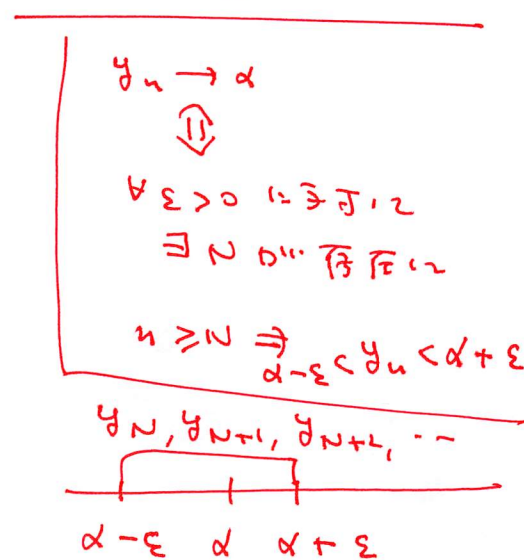 yₙ → α
⇕
∀ ε > 0 に対して
∃ N が存在して
n ≥ N ⇒ α-ε < yₙ < α+ε
y_N, y_{N+1}, y_{N+2}, …
α-ε α α+ε